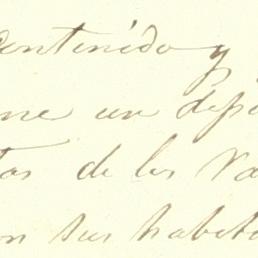 Contenido y
ne un depo
tos de los va
on sus habita